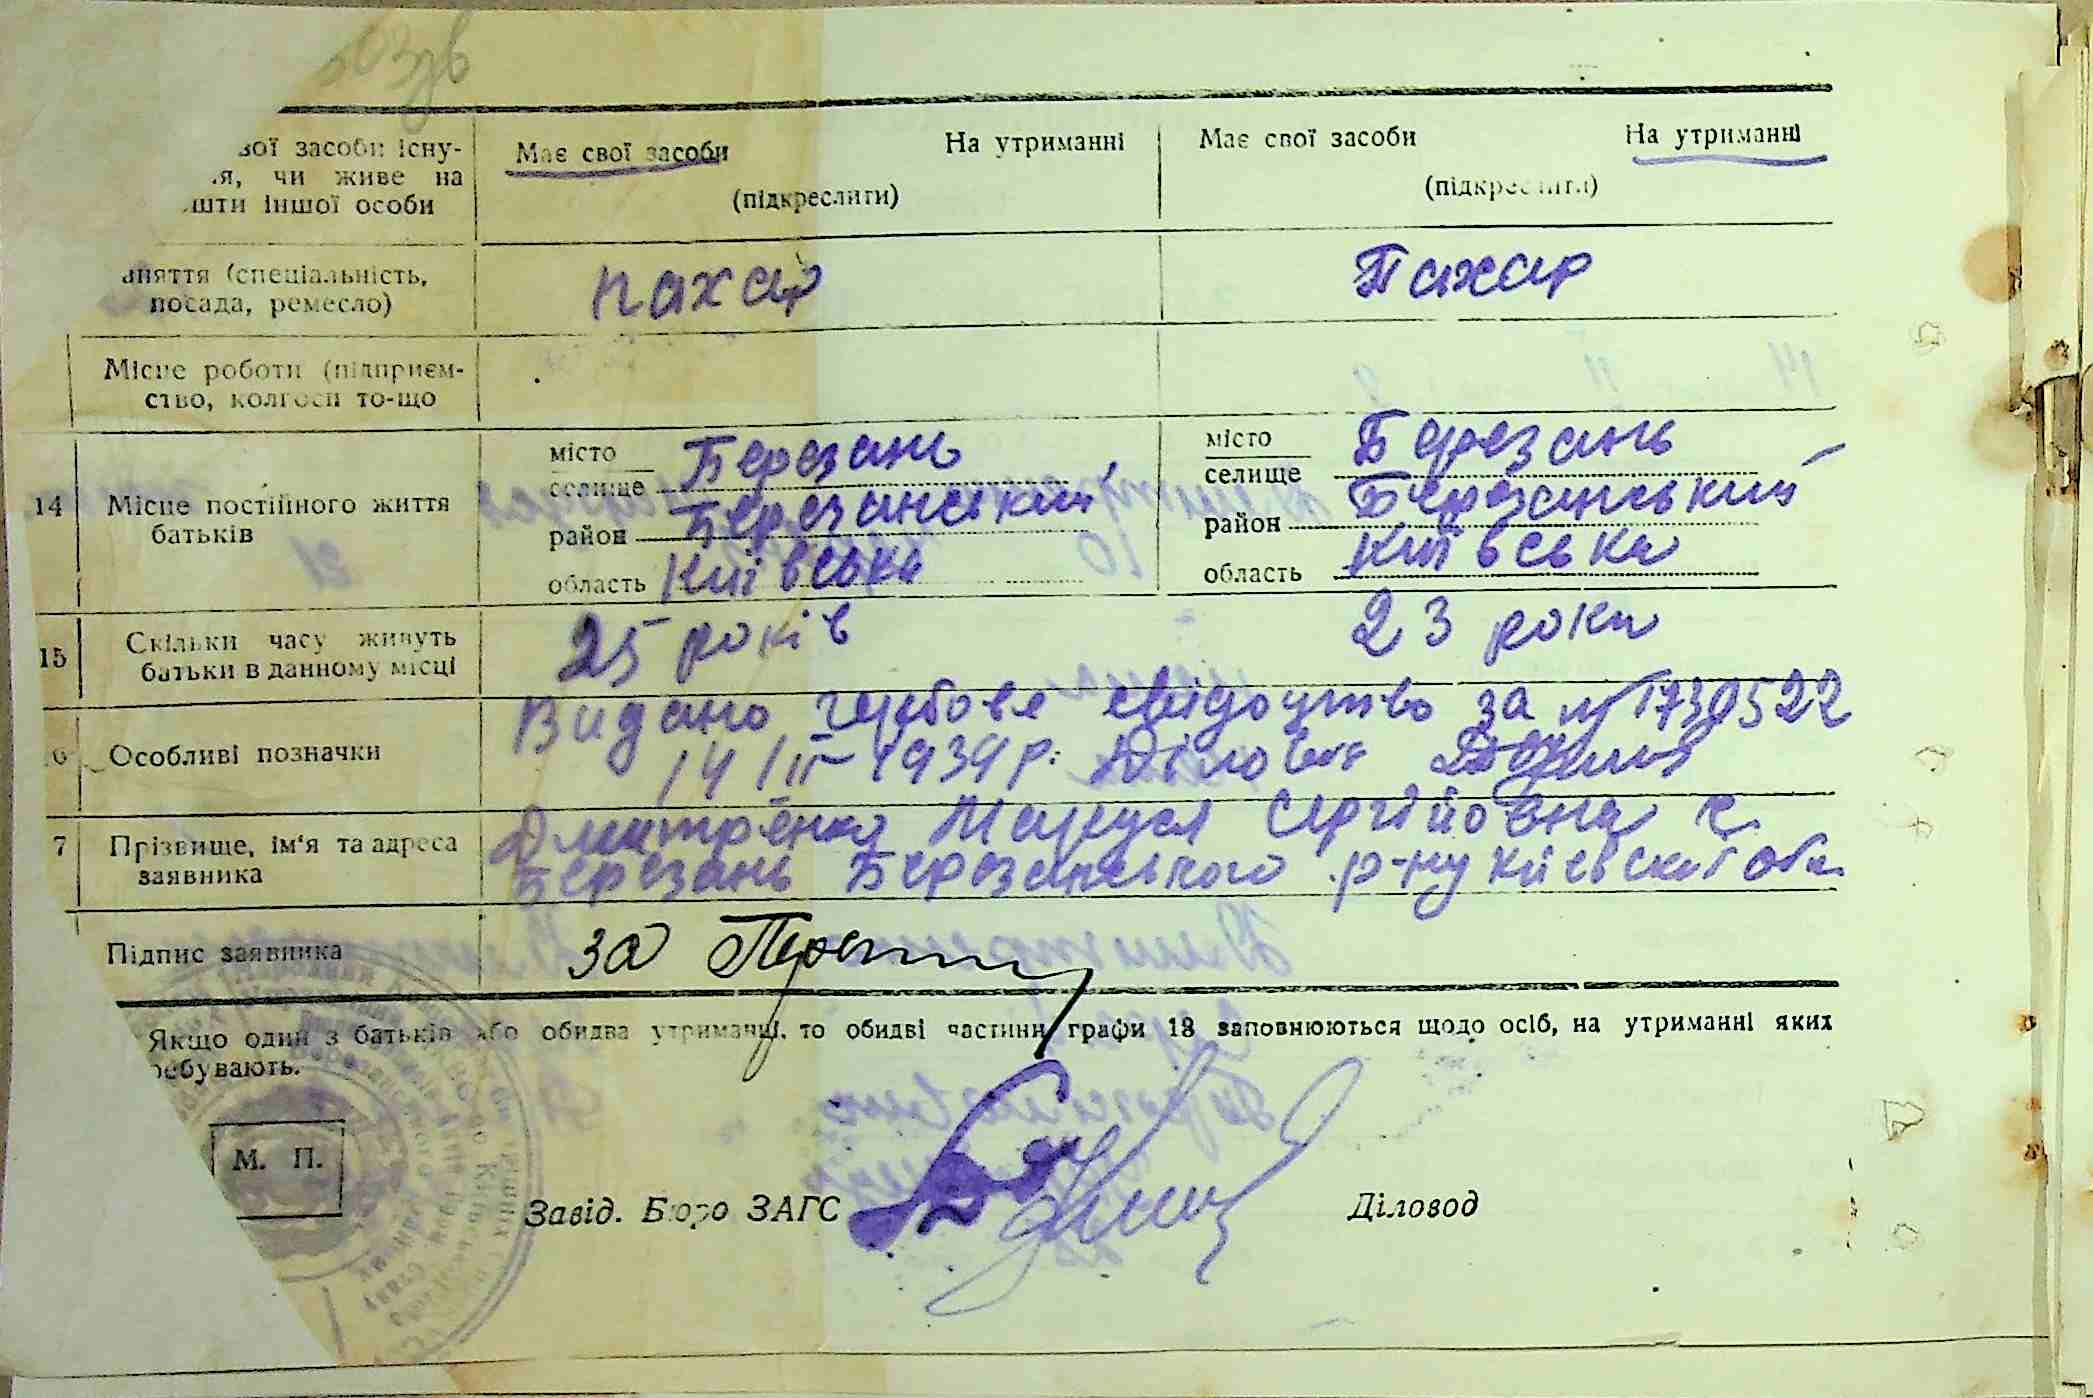 вої засоби існу-
я, чи живе на
шти іншої особи
Має свої засоби На утриманні
(підкреслити)
Має свої засоби На утриманні
(підкреслити)
аняття (спеціальність,
посада, ремесло)
пахар
Пахар
Місце роботи (підприєм-
ство, колгосп то-що
14 Місце постійного життя
батьків
місто
селище Березань
район Березанський
область Київська
місто
селище Березань
район Березанський
область Київська
15 Скільки часу живуть
батьки в данному місці
25 років
23 роки
6 Особливі позначки
Видано гербове свідоцтво за № 1730522
14/III 1939 р. Діловод
7 Прізвище, ім'я та адреса
заявника
Дмитренко Маруся Сергійовна с.
Березань Березанського р-ну Киевскої обл.
Підпис заявника
за
Якщо один з батьків або обидва утриманці, то обидві частини графи 13 заповнюються щодо осіб, на утриманні яких
ребувають.
М. П.
Завід. Бюро ЗАГС
Діловод